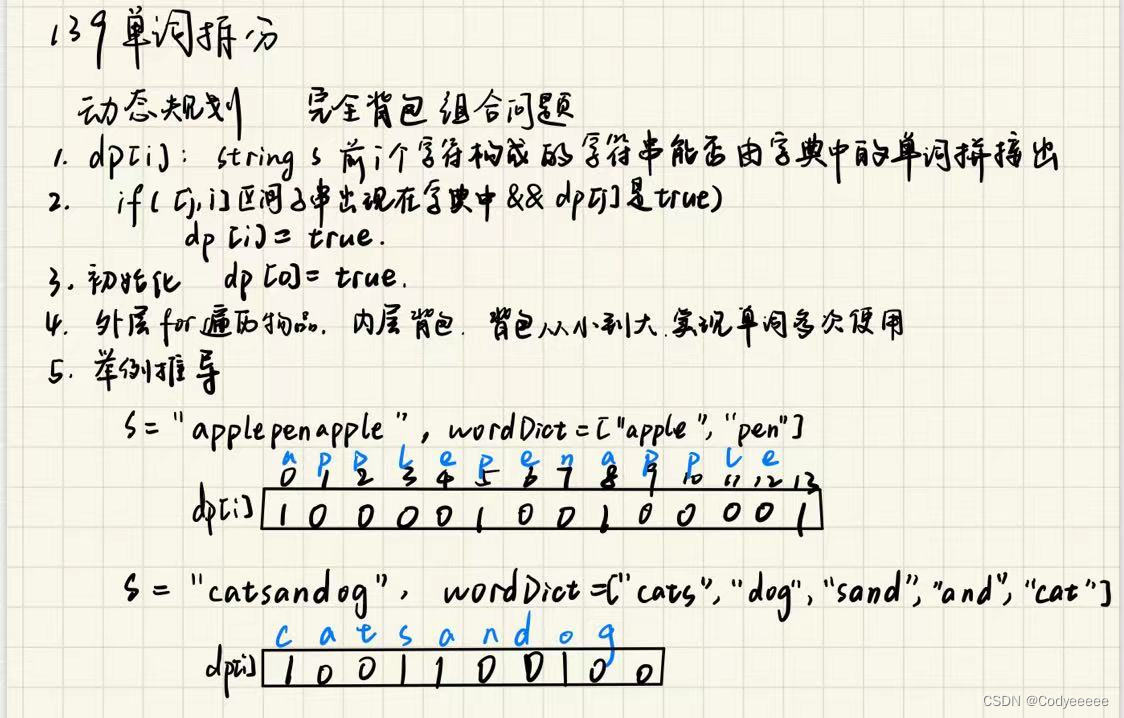 139 单词拆分
动态规划 完全背包 组合问题
1. dp[i]: string s 前i个字符构成的字符串能否由字典中的单词拼接出
2. if( [j,i]区间子串出现在字典中 && dp[j]是true)
dp[i] = true.
3. 初始化 dp[0] = true.
4. 外层for遍历物品. 内层背包. 背包从小到大.实现单词多次使用
5. 举例推导
s = "applepenapple", wordDict = ["apple", "pen"]
a p p l e p e n a p p l e
0 1 2 3 4 5 6 7 8 9 10 11 12 13
dp[i] 1 0 0 0 0 1 0 0 1 0 0 0 0 1
s = "catsandog", wordDict = ["cats", "dog", "sand", "and", "cat"]
c a t s a n d o g
dp[i] 1 0 0 1 1 0 0 1 0 0
CSDN @Codyeeeee